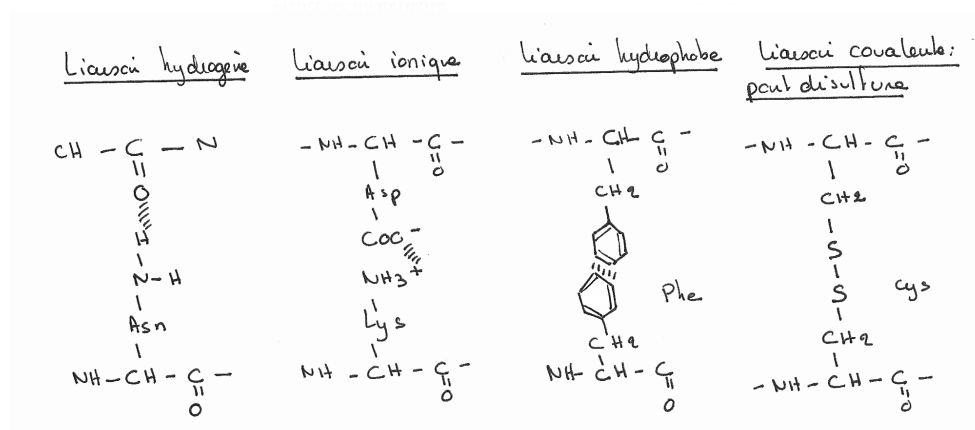 Liaison hydrogène
CH - C - N
O
H
N - H
Asn
NH - CH - C -
O
Liaison ionique
- NH - CH - C -
O
Asp
COO-
NH3+
Lys
NH - CH - C -
O
Liaison hydrophobe
- NH - CH C -
O
CH2
Phe
CH2
NH- CH - C
O
Liaison covalente:
pont disulfure
- NH - CH - C -
O
CH2
S
S
Cys
CH2
- NH - CH - C -
O